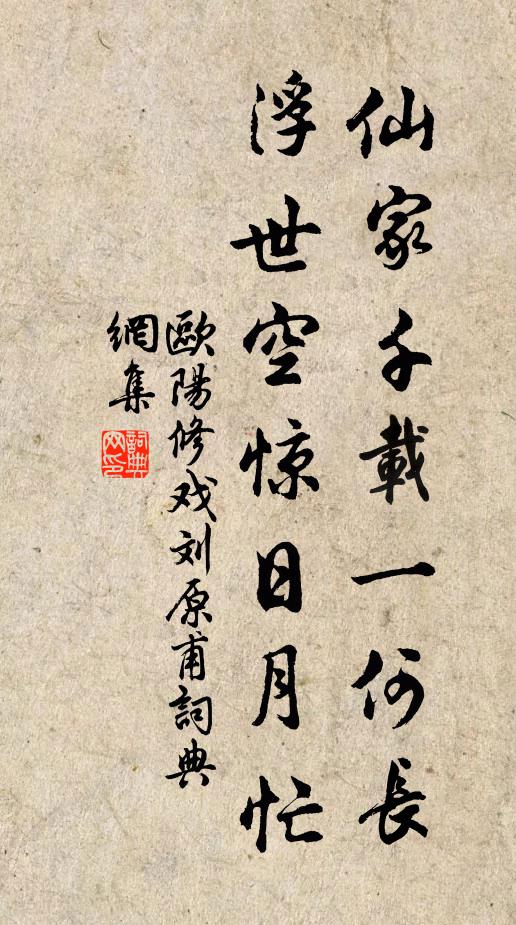 仙家千載一何長
浮世空惊日月忙
歐陽修戏刘原甫詞典
網集
詞典网印